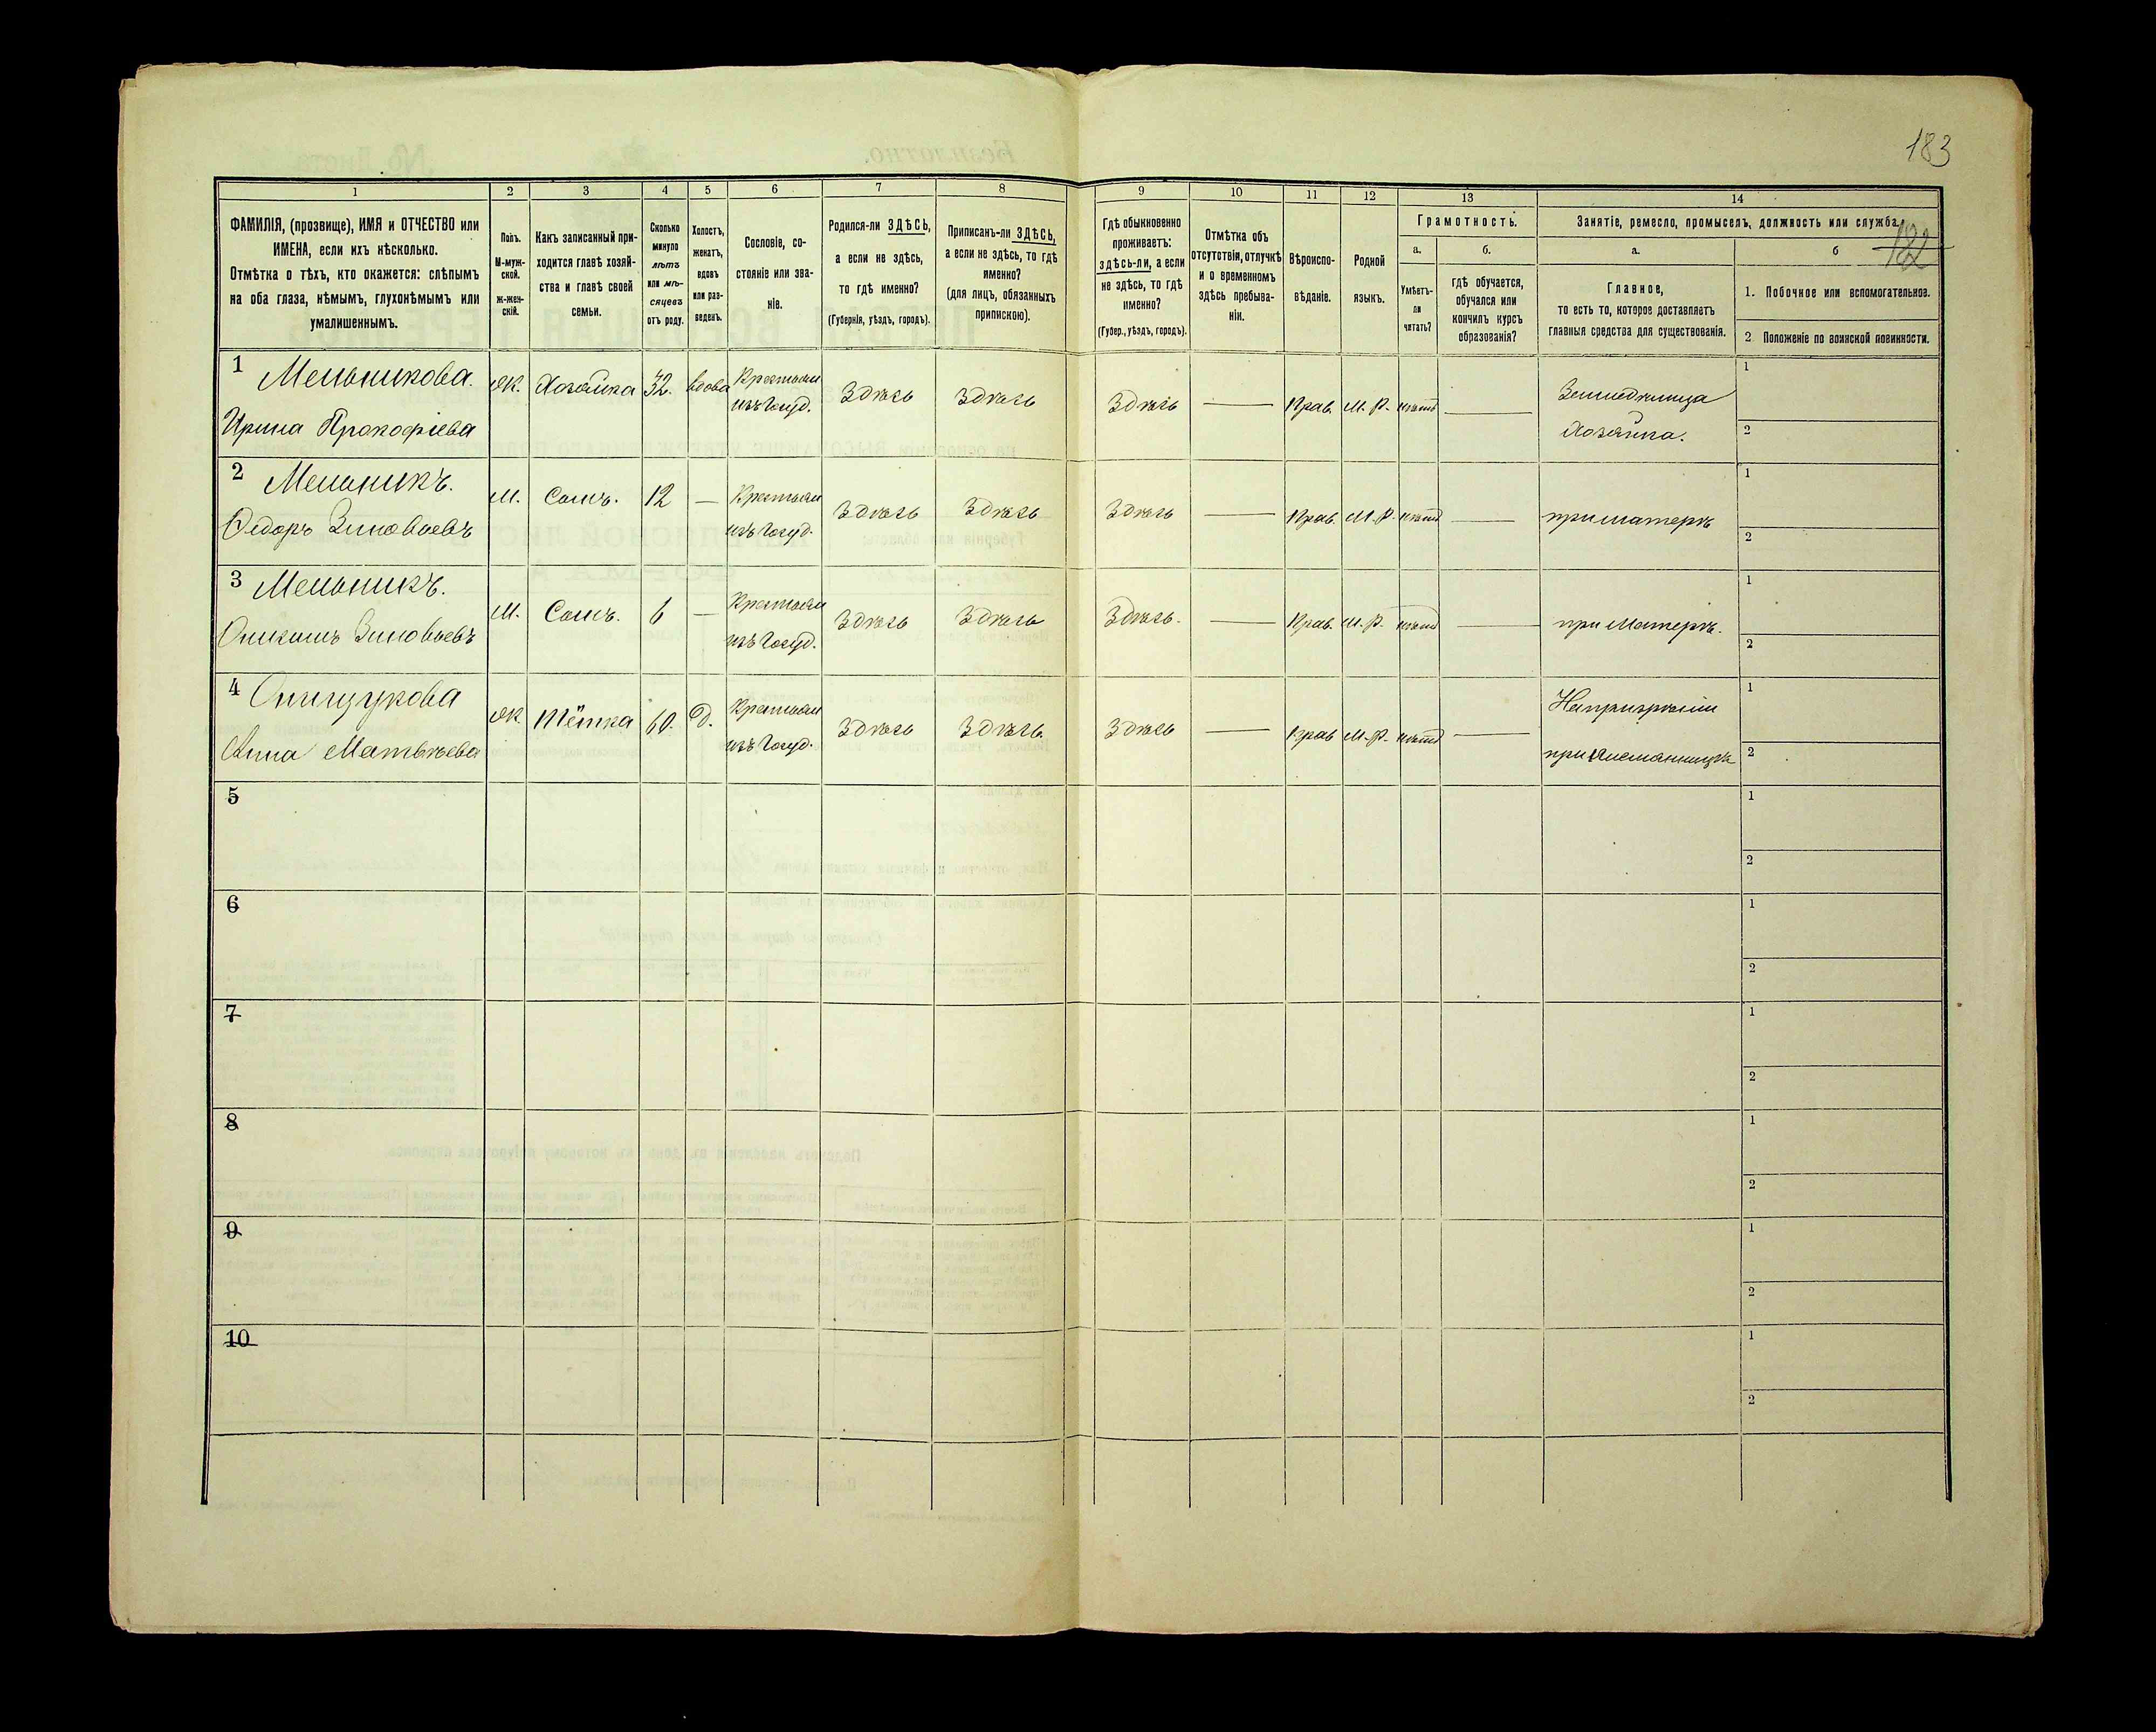 183
1 2 3 4 5 6 7 8 9 10 11 12 13 14
ФАМИЛІЯ, (прозвище), ИМЯ и ОТЧЕСТВО или
ИМЕНА, если ихъ нѣсколько.
Отмѣтка о тѣхъ, кто окажется: слѣпымъ
на оба глаза, нѣмымъ, глухонѣмымъ или
умалишеннымъ.
Полъ.
М-муж-
ской.
ж-жен-
скій.
Какъ записанный при-
ходится главѣ хозяй-
ства и главѣ своей
семьи.
Сколько
минуло
лѣтъ
или мѣ-
сяцевъ
отъ роду.
Холостъ,
женатъ,
вдовъ
или раз-
веденъ.
Сословіе, со-
стояніе или зва-
ніе.
Родился-ли ЗДѢСЬ,
а если не здѣсь,
то гдѣ именно?
(Губернія, уѣздъ, городъ).
Приписанъ-ли ЗДѢСЬ,
а если не здѣсь, то гдѣ
именно?
(для лицъ, обязанныхъ
припискою).
Гдѣ обыкновенно
проживаетъ:
здѣсь-ли, а если
не здѣсь, то гдѣ
именно?
(Губер., уѣздъ, городъ).
Отмѣтка объ
отсутствіи, отлучкѣ
и о временномъ
здѣсь пребыва-
ніи.
Вѣроиспо-
вѣданіе.
Родной
языкъ.
Грамотность.
а.
Умѣетъ-
ли
читать?
б.
гдѣ обучается,
обучался или
кончилъ курсъ
образованія?
Занятіе, ремесло, промыселъ, должность или служба.
182
а.
Главное,
то есть то, которое доставляетъ
главныя средства для существованія.
б
1. Побочное или вспомогательное.
2 Положеніе по воинской повинности.
1 Мельникова. Ж. Хозяйка 32. вдова Крестьян Здѣсь Здѣсь Здѣсь — Прав. М. Р. нѣтъ — Земледѣлица 1
Ирина Прокофіева изъ Госуд. Хозяйка. 2
2 Мельникъ. М. Сынъ. 12 — Крестьян Здѣсь Здѣсь Здѣсь — Прав. М. Р. нѣтъ — при матерѣ 1
Ѳедоръ Зиновьевъ изъ Госуд. 2
3 Мельникъ. М. Сынъ. 6 — Крестьян Здѣсь Здѣсь Здѣсь. — Прав. М. Р. нѣтъ — при Матерѣ. 1
Зиновьевъ изъ Госуд. 2
4 Онищукова Ж. Тётка 60. Д. Крестьян Здѣсь Здѣсь Здѣсь — Прав М. Р. нѣтъ — 1
Анна Матвѣева изъ Госуд. при 2
5 1
2
6 1
2
7 1
2
8 1
2
9 1
2
10 1
2